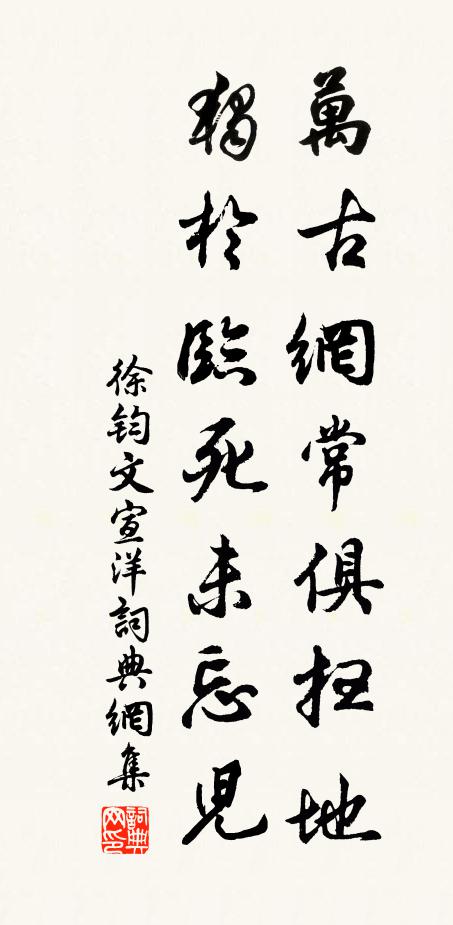 萬古網常俱扫地
獨於臨死未忘兒
徐鈞文宣洋詞典網集
詞典网印